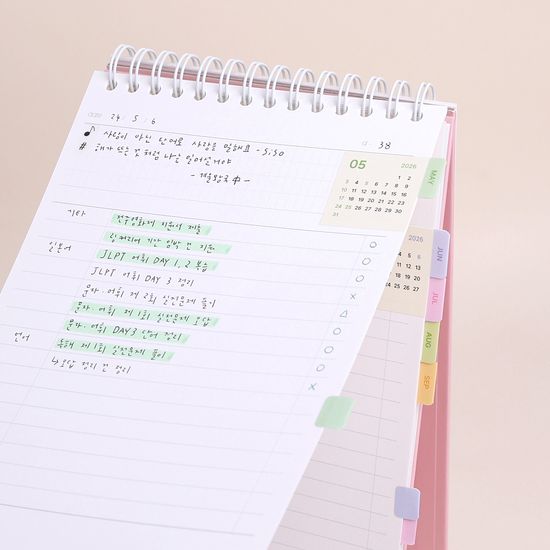 24. 5. 6
38
♪ 사랑이 아닌 단어로 사랑을 말해요 - 5:30
# 해가 뜨는 것처럼 나는 일어날거야
05 2026
1 2
3 4 5 6 7 8 9
10 11 12 13 14 15 16
17 18 19 20 21 22 23
24 25 26 27 28 29 30
31
MAY
기타
전주영화제 지원서 제출
일본어
JLPT 어휘 DAY 1, 2 복습
JLPT 어휘 DAY 3 정리
문자·어휘 제 2회 실전문제 풀이
문자·어휘 제 1회 실전문제 오답
문자·어휘 DAY 3 단어 정리
언어
독해 제 1회 실전문제 풀이
↳ 오답 정리 전 정리
2026
JUN
JUL
AUG
SEP